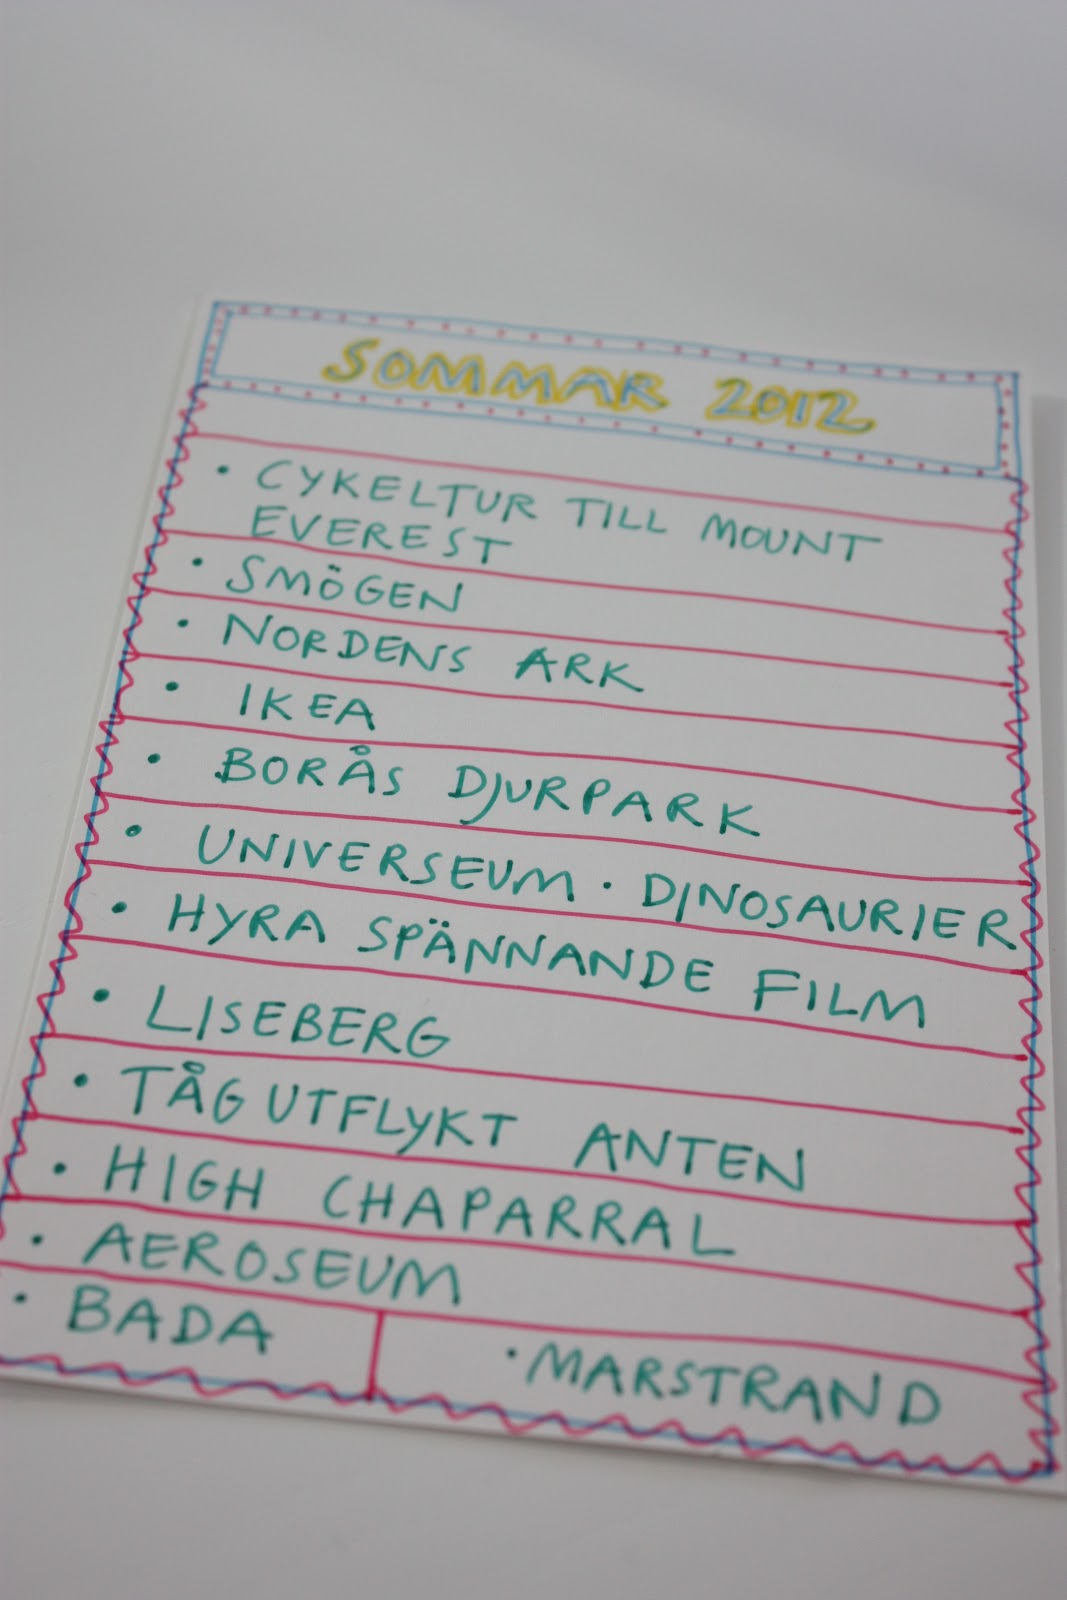 SOMMAR 2012
• CYKELTUR TILL MOUNT
EVEREST
• SMÖGEN
• NORDENS ARK
• IKEA
• BORÅS DJURPARK
• UNIVERSEUM · DINOSAURIER
• HYRA SPÄNNANDE FILM
• LISEBERG
• TÅGUTFLYKT ANTEN
• HIGH CHAPARRAL
• AEROSEUM
• BADA • MARSTRAND